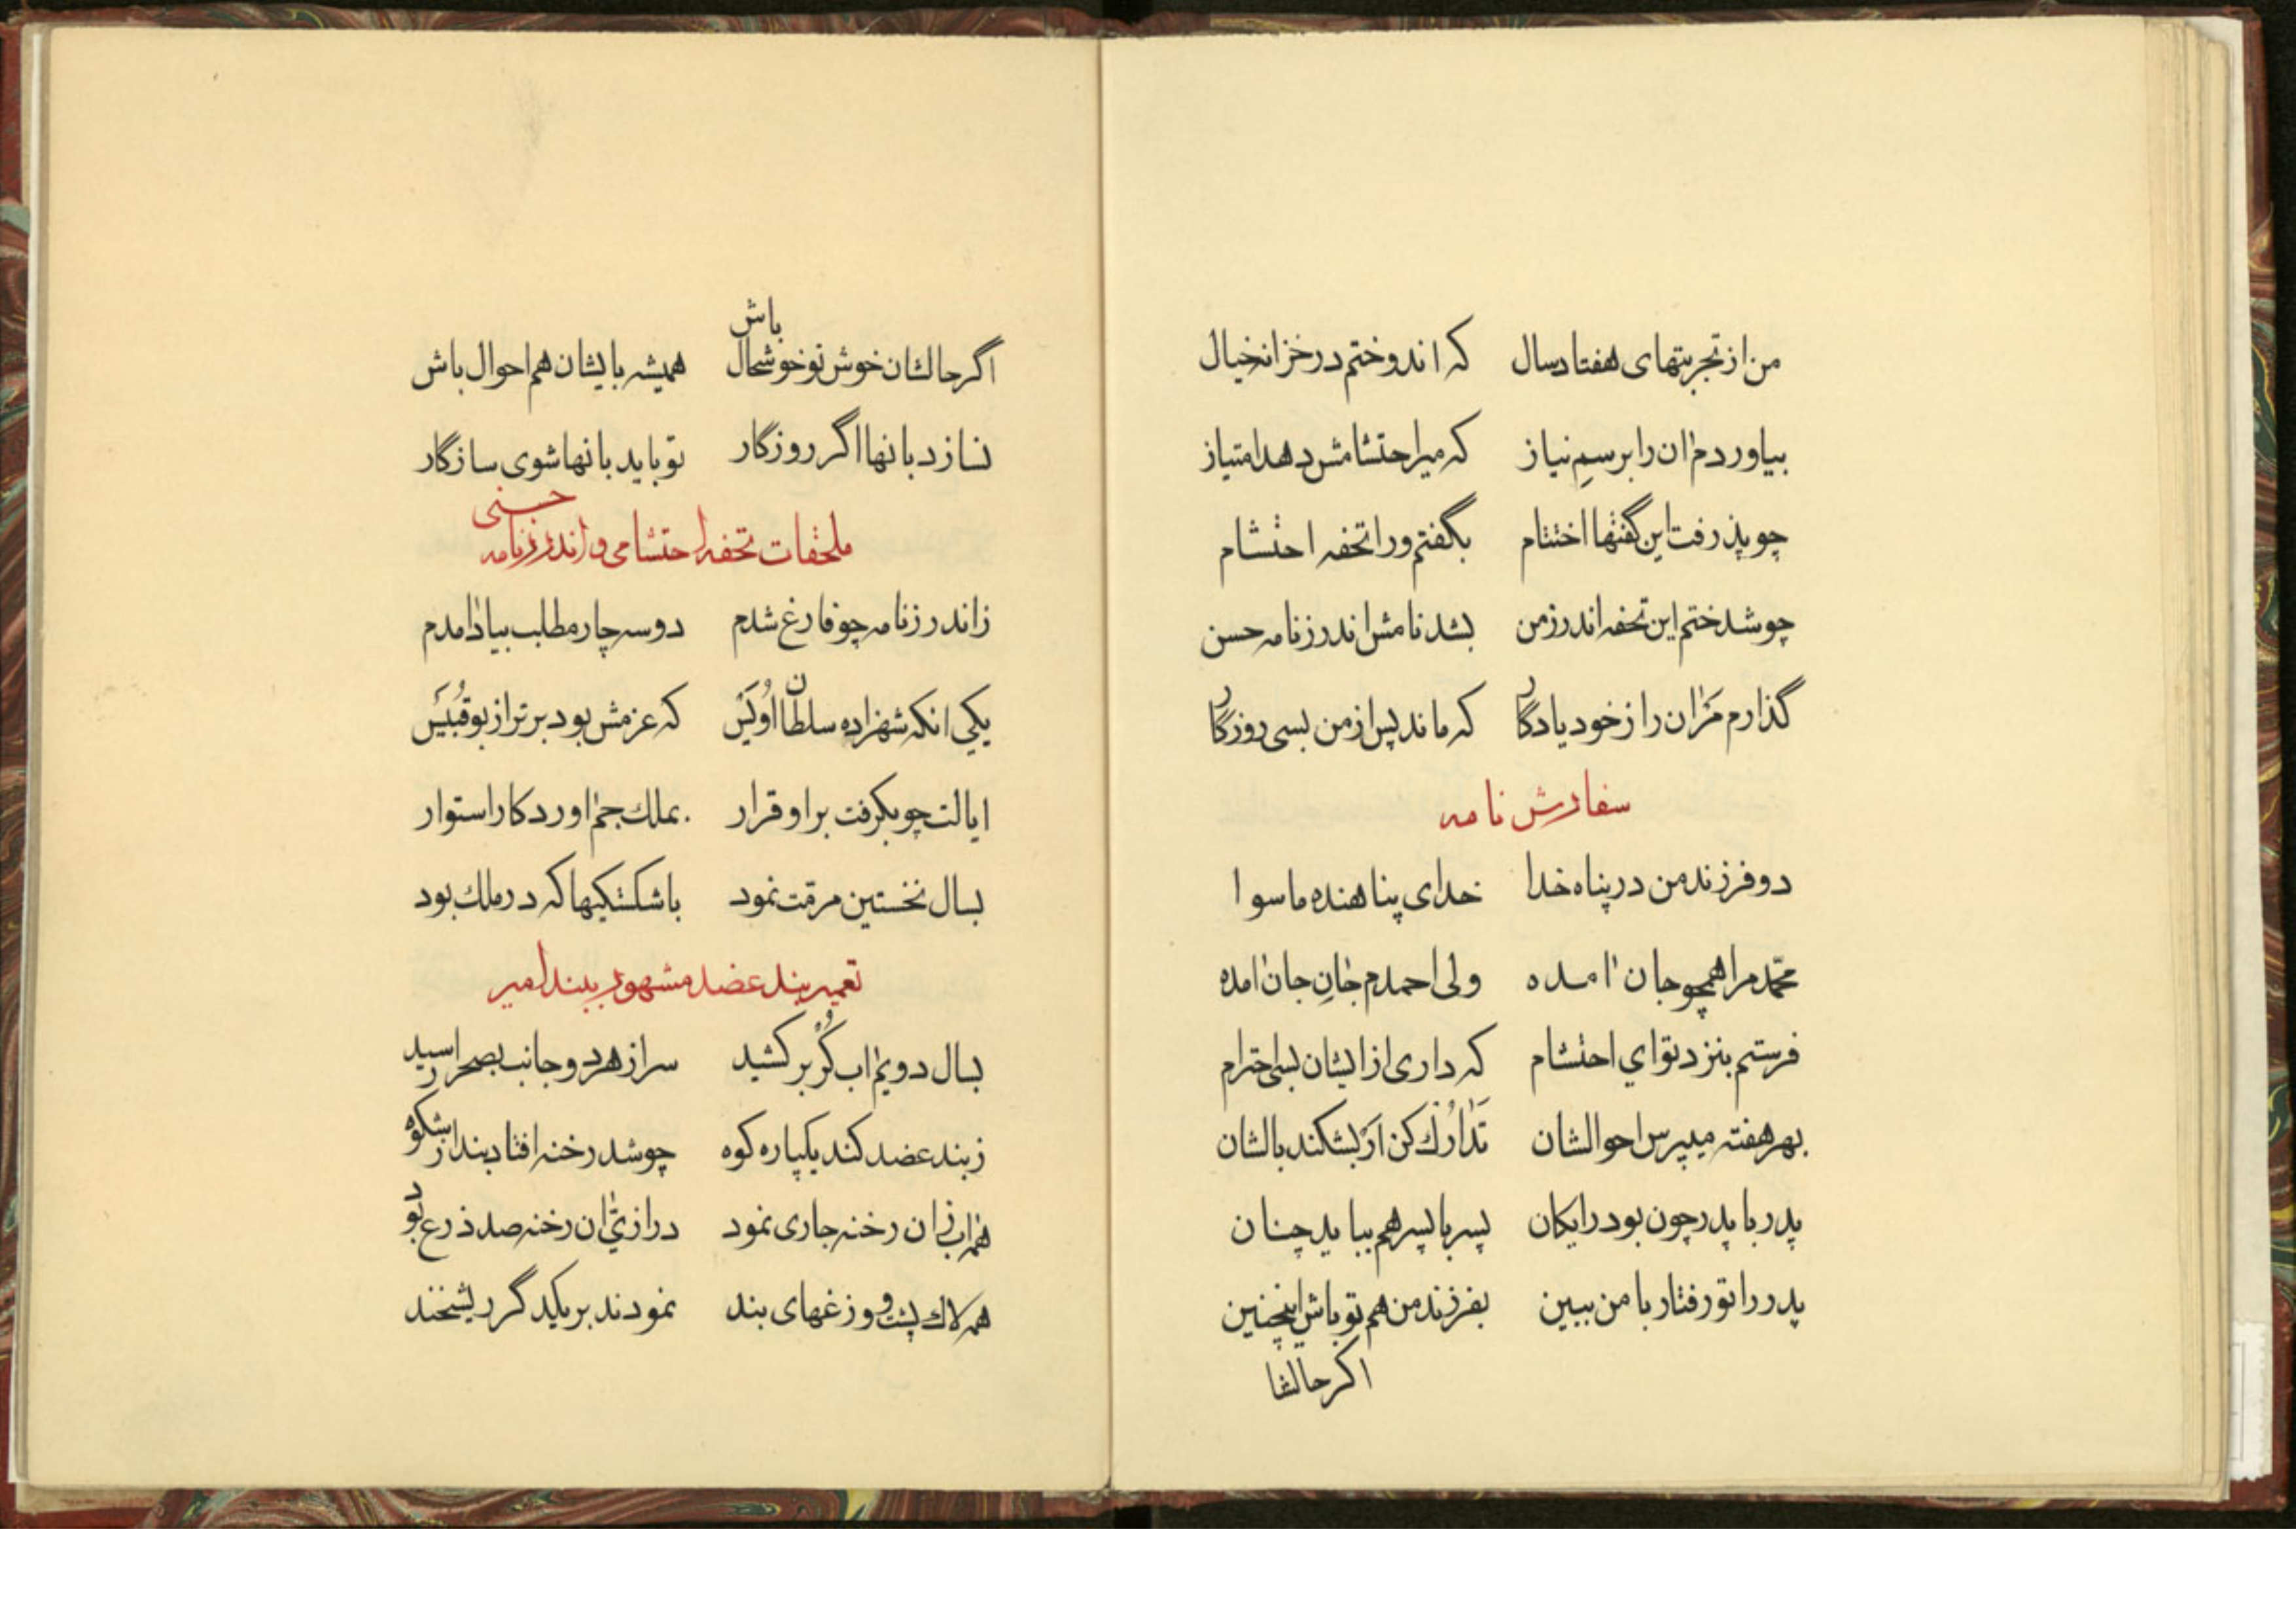 من از تجربتهای هفتاد سال که اندوختم در خزانه خیال
بیاوردم آن را برسمِ نیاز که میر احتشامش دهد امتیاز
چو پذرفت این گفتها اختتام بگفتم ورا تحفه احتشام
چو شد ختم این تحفه اندرز من بشد نامش اندرزنامه حسن
گذارم مرآن را ز خود یادگار که ماند پس از من بسی روزگار
سفارش نامه
دو فرزند من در پناه خدا خدای پناهنده ماسوا
محمّد مرا همچو جان آمده ولی احمدم جانِ جان آمده
فرستم بنزد تو ای احتشام که داری از ایشان بسی احترام
بهر هفته میپرس احوالشان تَدارُک کن ار بشکند بالشان
پدر با پدر چون بود رایکان پسر با پسر هم بباید چنان
پدر را تو رفتار با من ببین بفرزند من هم تو باش اینچنین
اکر حالشا
اگر حالشان خوش تو خوشحال باش همیشه بایشان هم احوال باش
نسازد بانها اگر روزگار تو باید بانها شوی سازگار
ملحقات تحفه احتشامی و اندرزنامه حسنی
ز اندرزنامه چو فارغ شدم دو سه چار مطلب بیاد آمدم
یکی انکه شهزاده سلطان اُوَیْس که عزمش بود برتر از بوقُبَیْس
ایالت چو بکرفت بر او قرار بملک جم آورد کار استوار
بسال نخستین مرمّت نمود باشکستکیها که در ملک بود
تعمیر بند عضد مشهور ببند امیر
بسال دویم آب کُر بر کشید سر از هر دو جانب بصحرا رسید
ز بند عضد کند یکپاره کوه چو شد رخنه افتاد بند از شکوه
همه آب زان رخنه جاری نمود درازیّ آن رخنه صد ذرع بود
همه لاک پشت و وزغهای بند نمودند بر یکدگر ریشخند